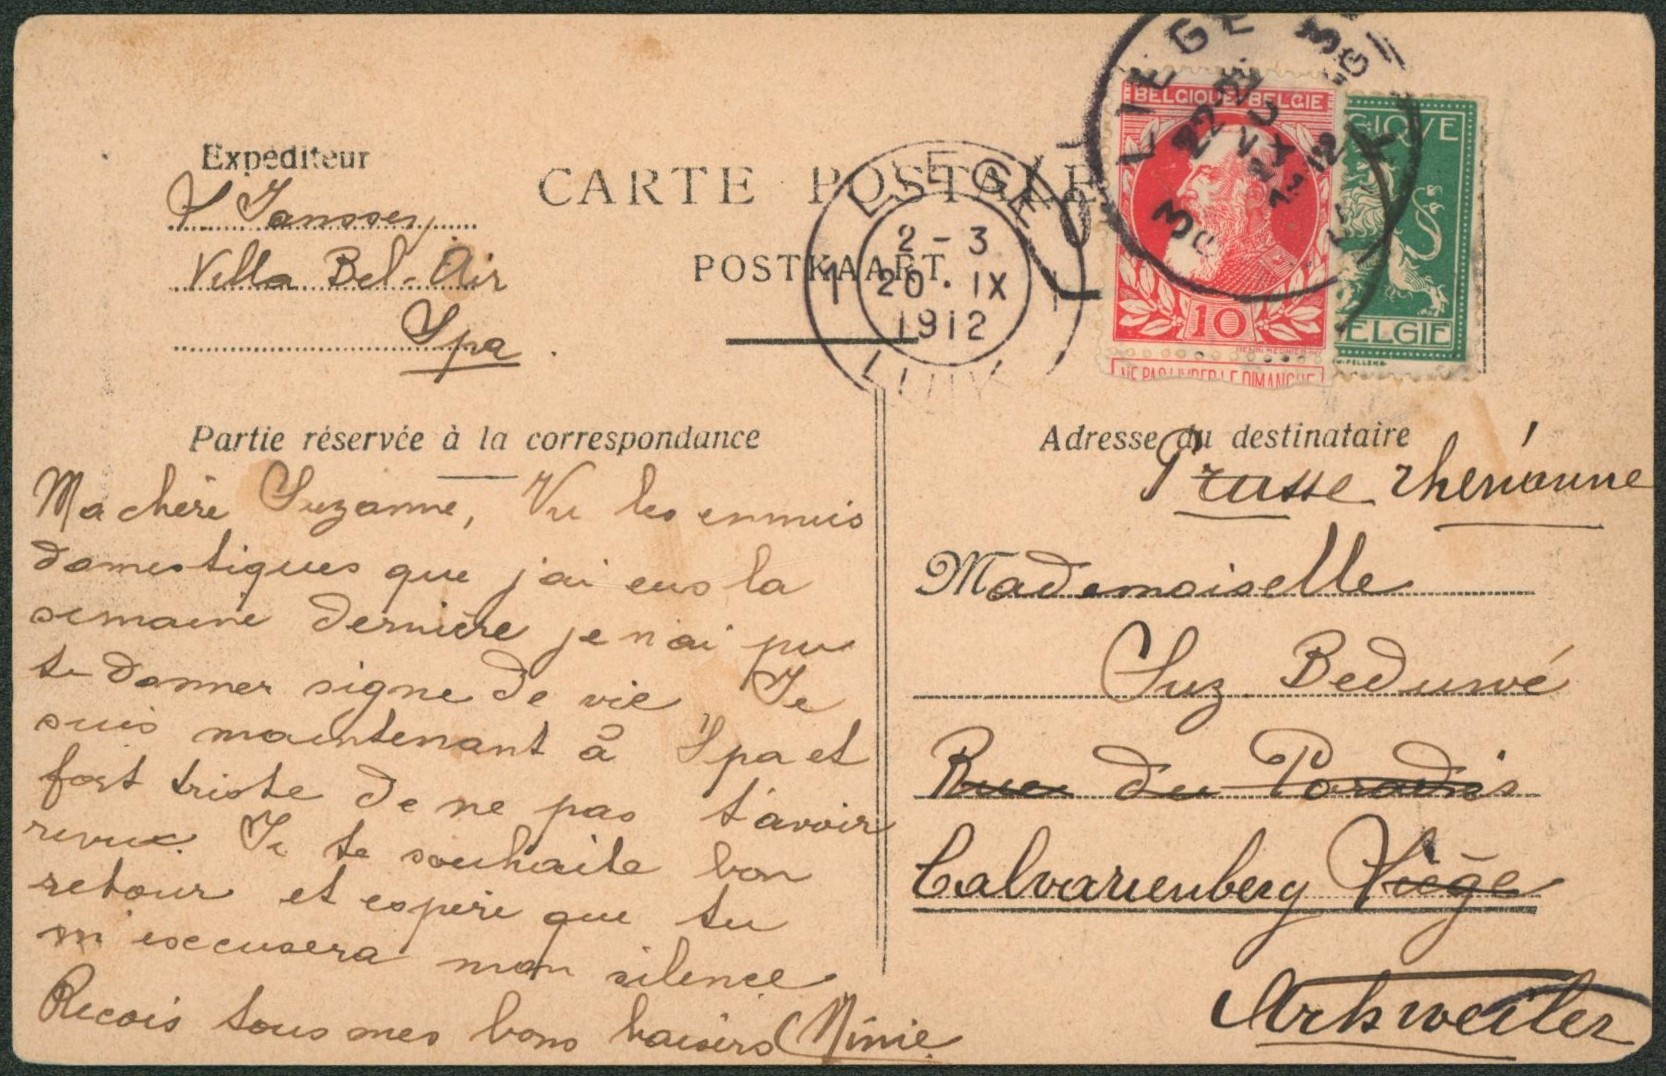 Expéditeur
J. Janssen
Villa Bel-Air
Spa
CARTE POSTALE
POSTKAART
LIEGE
1
2-3
20·IX
1912
LUIK
LIEGE
22-23
12
BELGIQUE-BELGIE
10
NE PAS LIVRER LE DIMANCHE
GIQUE
ELGIE
Partie réservée à la correspondance
Ma chère Suzanne, Vu les ennuis
domestiques que j'ai eus la
semaine dernière je n'ai pu
te donner signe de vie Je
suis maintenant à Spa et
fort triste de ne pas t'avoir
revue. Je te souhaite bon
retour et espère que tu
m'exccusera mon silence
Recois tous mes bons baisers Ninie
Adresse du destinataire
Prusse rhénanne
Mademoiselle
Suz. Bedunvé
Rue du Paradis
Calvarienberg Liège
Arhweiler